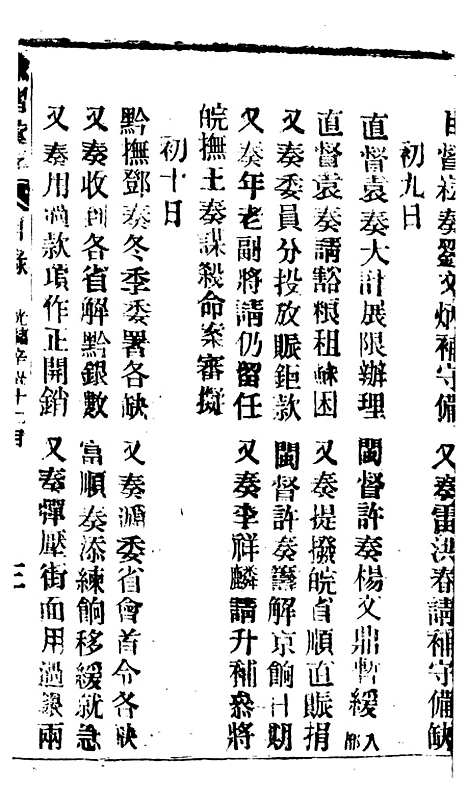 督袁奏劉文炳補守備 又奏雷洪春請補守備缺
初九日
直督袁奏大計展限辦理 閩督許奏楊文鼎暫緩入都
直督袁奏請豁粮租蘇困 又奏提撥皖省順直賑捐
又奏委員分投放賑鉅款 閩督許奏籌解京餉日期
又奏年老副將請仍留任 又奏李祥麟請升補叅將
皖撫王奏謀殺命案審擬
初十日
黔撫鄧奏冬季委署各缺 又奏遞委省會首令各缺
又奏收到各省解黔銀數 富順奏添練餉移緩就急
又奏用過款項作正開銷 又奏彈壓街面用過銀兩
目錄 光緒辛丑十二月 三